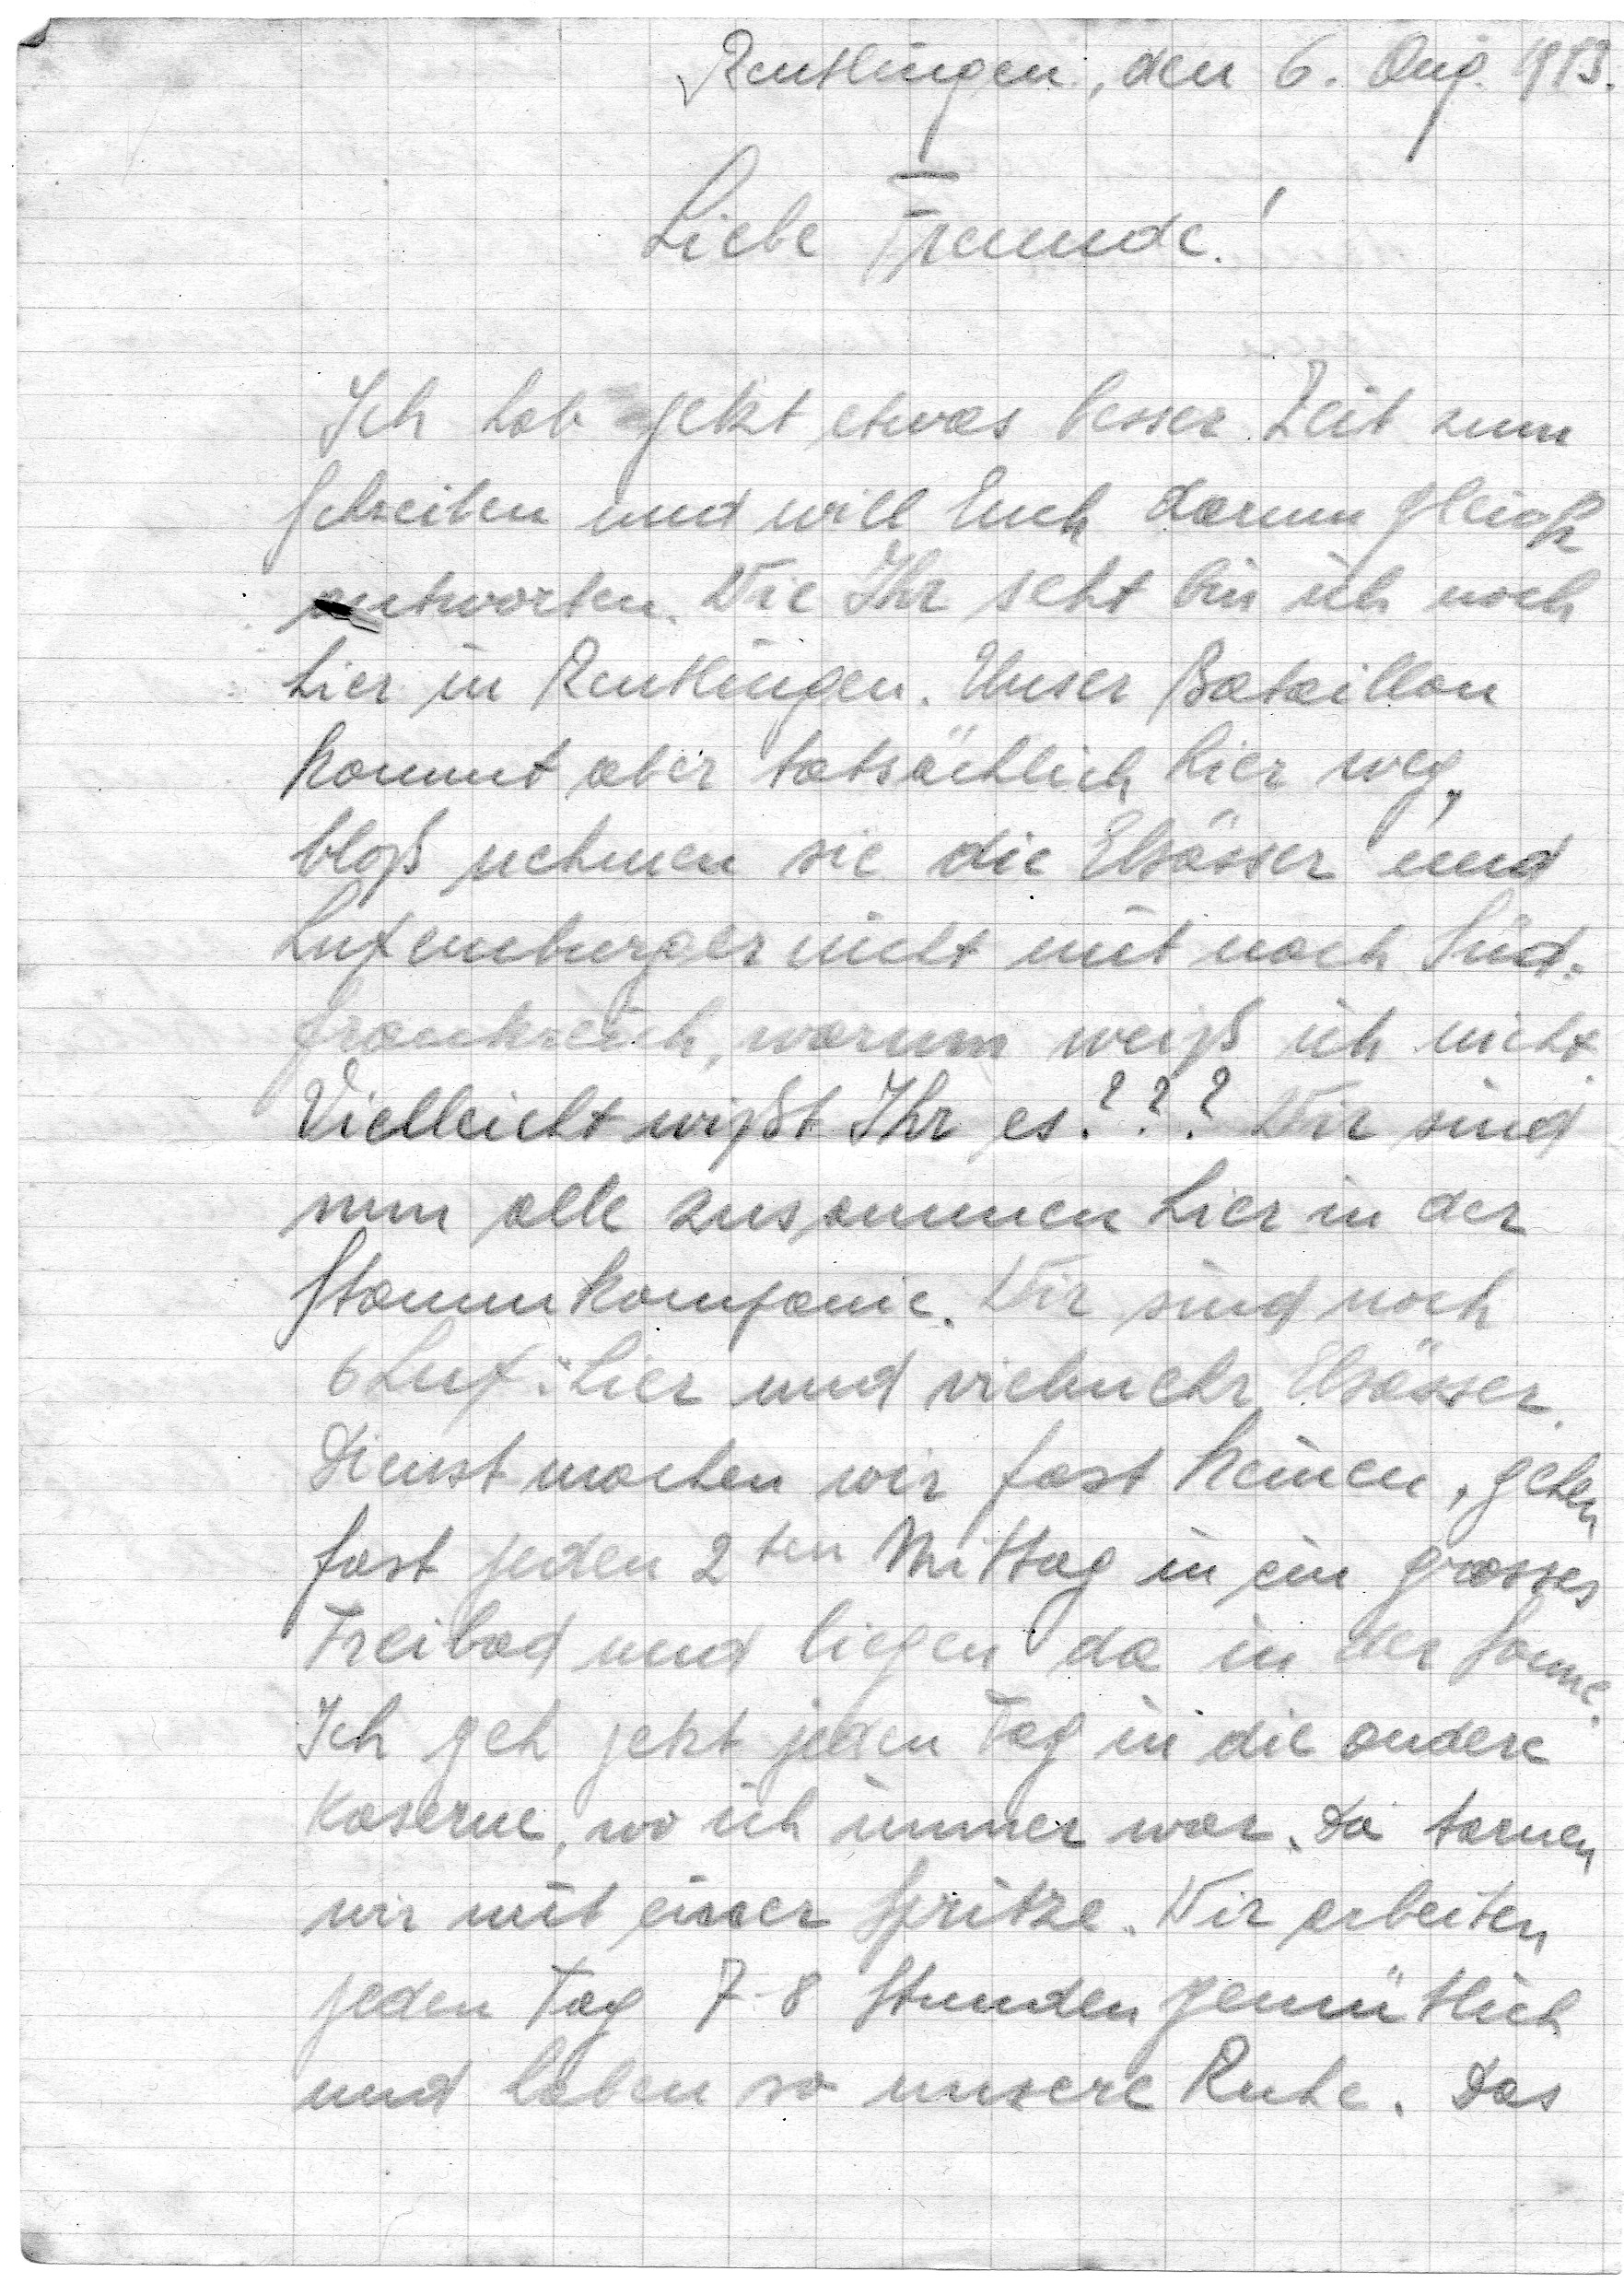 Reutlingen, den 6. Aug. 1943.
Liebe Freunde!
Ich hab jetzt etwas besser Zeit zum
schreiben und will Euch darum gleich
antworten. Wie Ihr seht bin ich noch
hier in Reutlingen. Unser Bataillon
kommt aber tatsächlich hier weg,
bloß nehmen sie die Elsässer und
Luxemburger nicht mit nach Süd-
frankreich, warum weiß ich nicht.
Vielleicht wißt Ihr es??? Wir sind
nun alle zusammen hier in der
Stammkompanie. Wir sind noch
6 Lux. hier und vielmehr Elsässer.
Dienst machen wir fast keinen, gehen
fast jeden 2ten Mittag in ein grosses
Freibad und liegen da in der Sonne.
Ich geh jetzt jeden Tag in die andere
Kaserne, wo ich immer war. Da tarnen
wir mit einer Spritze. Wir arbeiten
jeden Tag 7-8 Stunden gemütlich
und haben so unsere Ruhe. Das